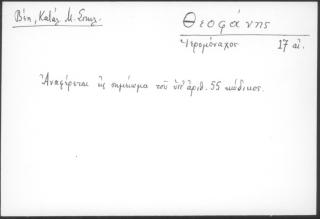 Βέη, Κατάλ. Μ. Στυλ.
Θεοφάνης
Ἱερομόναχος 17 αἰ.
Ἀναφέρεται εἰς σημείωμα τοῦ ὑπ' ἀριθ. 55 κώδικος.